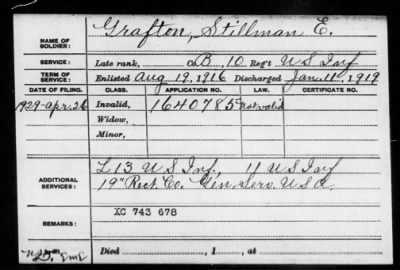 NAME OF SOLDIER: Grafton, Stillman E.
SERVICE: Late rank, B. 10 Reg't U S Inf
TERM OF SERVICE: Enlisted Aug 19, 1916 Discharged Jan. 11, 1919
DATE OF FILING. CLASS. APPLICATION NO. LAW. CERTIFICATE NO.
1929-Apr. 26 Invalid, 1640785 Not valid
Widow,
Minor,
ADDITIONAL SERVICES: L 13 U S Inf., 41 U S Inf
19" Rect. Co. Gen. Serv. U.S.A.
REMARKS: XC 743 678
Died , 1 , at